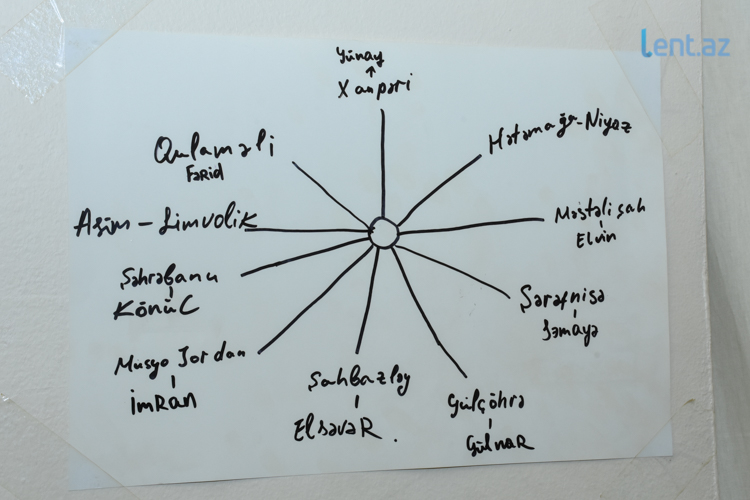 Lent.az
Yünay
Xanpəri
Qulaməli
Fərid
Hətəmağa-Niyaz
Asim - Simvolik
Məstəli şah
Elvin
Şəhrəbanu
Könül
Şərəfnisə
Səmayə
Musyo Jordan
İmran
Şahbazbəy
Elsəvər.
Gülçöhrə
Gülnar